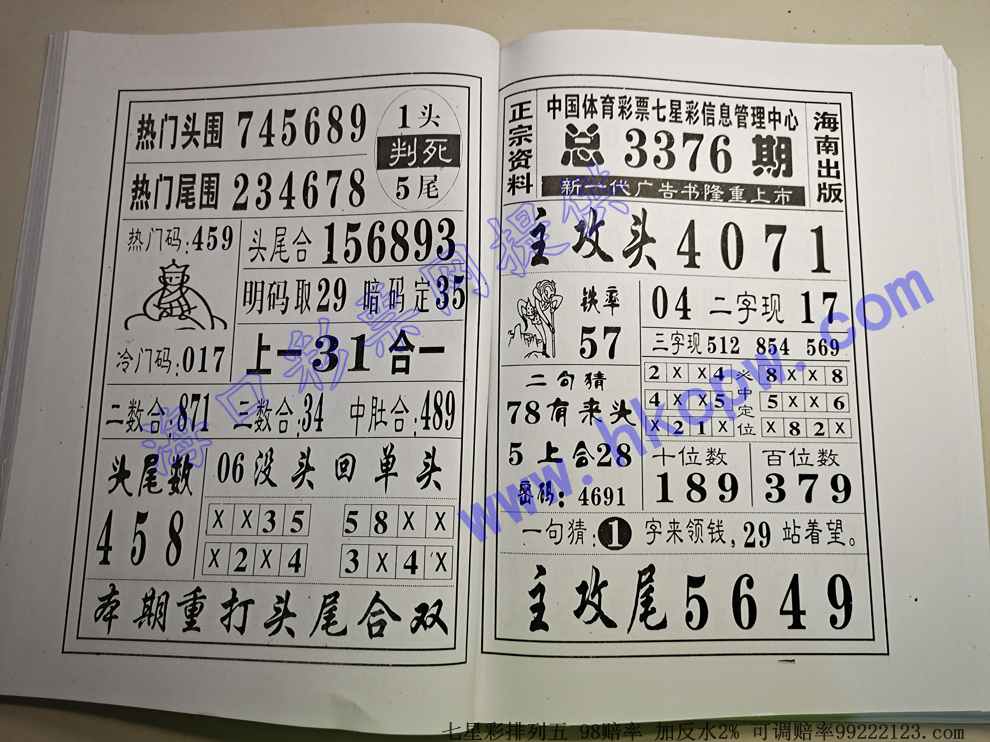 热门头围 745689
热门尾围 234678
1头
判死
5尾
热门码:459
冷门码:017
头尾合 156893
明码取29 暗码定35
上一31合一
二数合:871 三数合:34 中肚合:489
头尾数
458
06没头回单头
XX35 58XX
X2X4 3X4X
本期重打头尾合双
正宗资料
中国体育彩票七星彩信息管理中心
总 3376 期
新一代广告书隆重上市
海南出版
主攻头4071
铁率
57
04 二字现 17
三字现 512 854 569
2XX4
4XX5
X21X
头中定位
8XX8
5XX6
X82X
二句猜
78有来头
5上合28
密码: 4691
十位数
189
百位数
379
一句猜:1字来领钱,29站着望。
主攻尾5649
海口彩票网提供
www.hkcpw.com
七星彩排列五 98赔率 加反水2% 可调赔率99222123.com